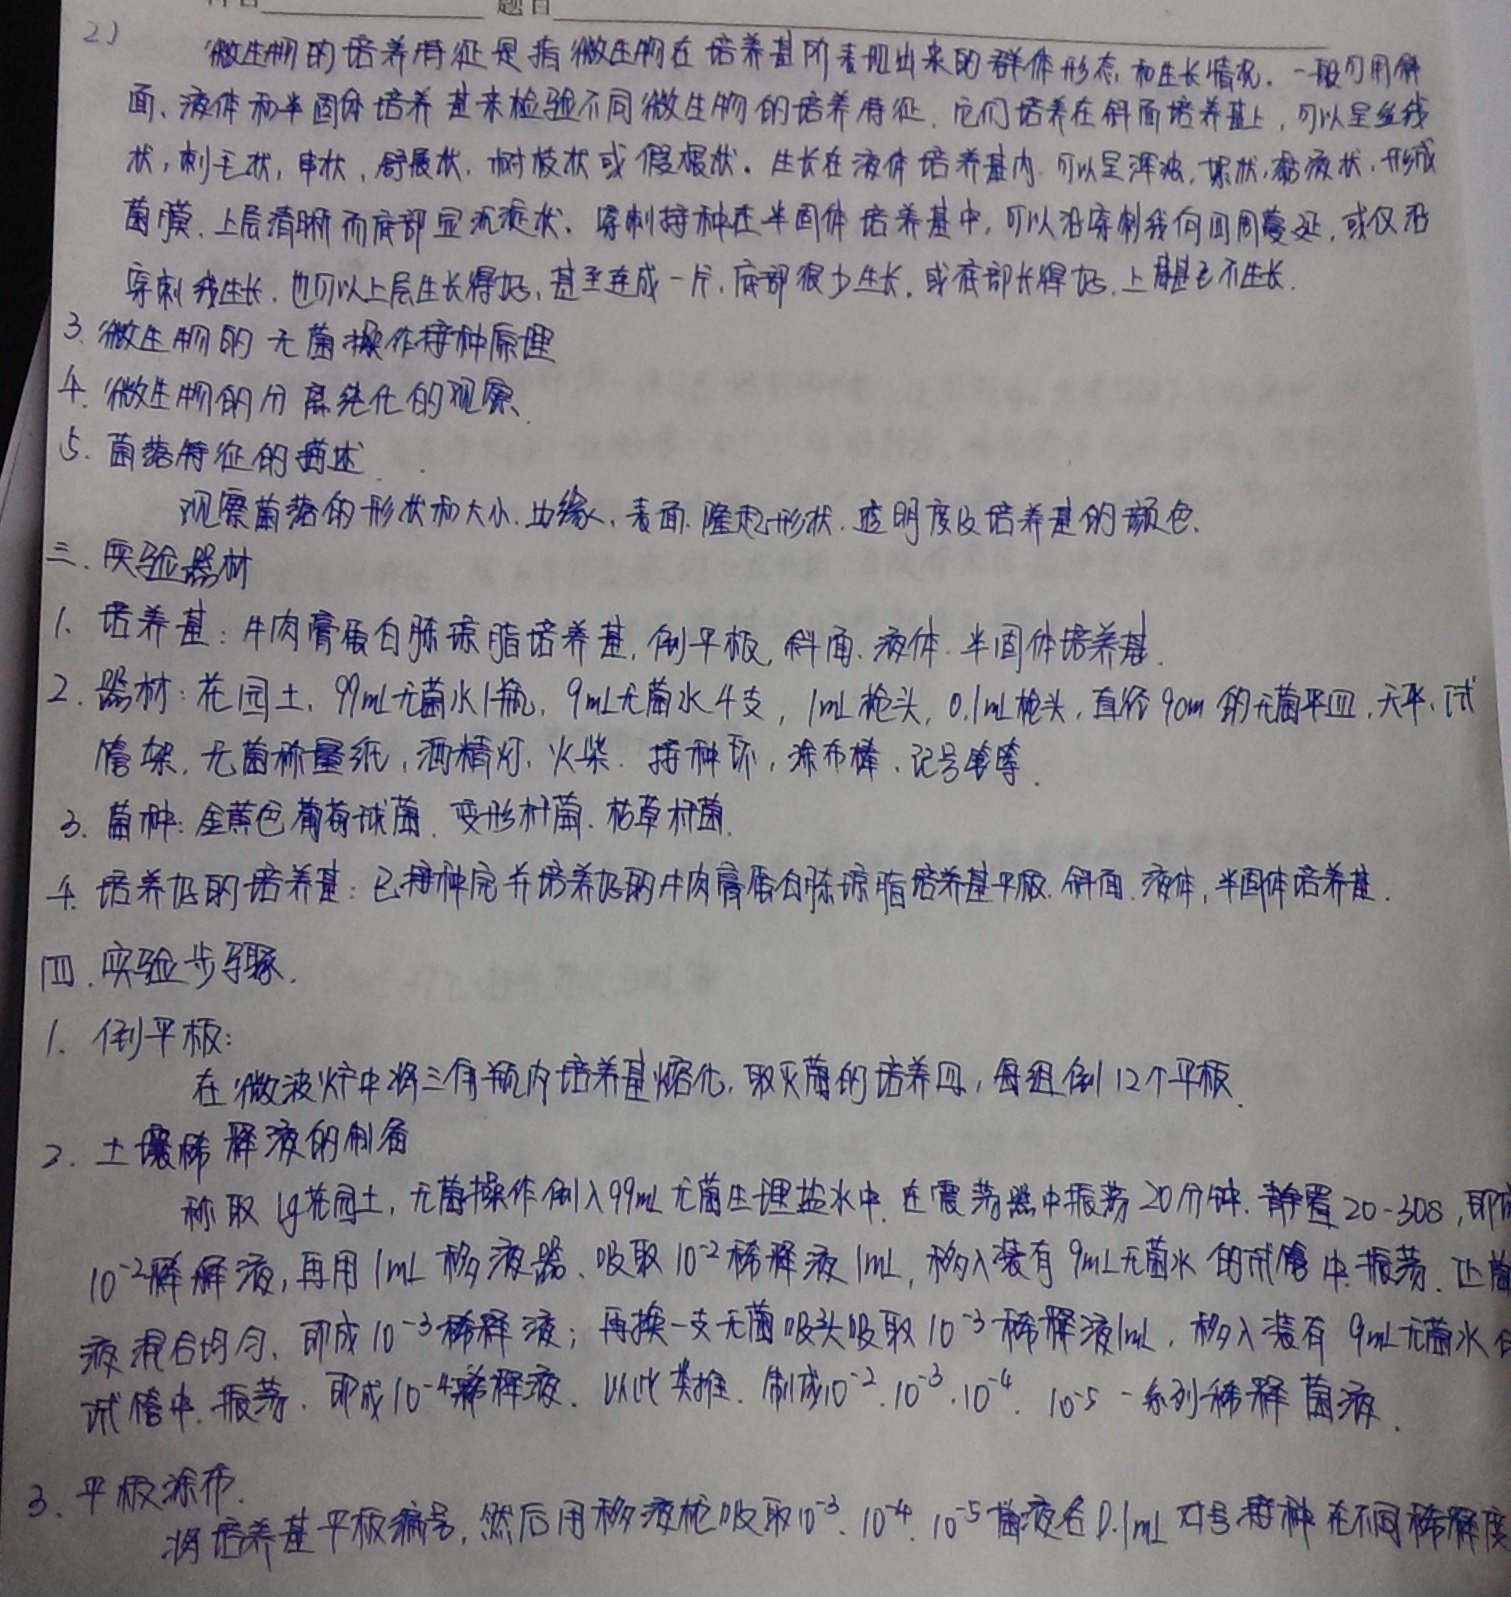 科目 题目
2)
微生物的培养特征是指微生物在培养基所表现出来的群体形态和生长情况. 一般可用斜
面、液体和半固体培养基来检验不同微生物的培养特征. 它们培养在斜面培养基上, 可以呈丝线
状, 刺毛状, 串状, 舒展状, 树枝状或假根状. 生长在液体培养基内 可以呈浑浊, 絮状, 黏液状, 形成
菌膜. 上层清晰而底部显沉淀状. 穿刺接种在半固体培养基中, 可以沿穿刺线向四周蔓延, 或仅沿
穿刺线生长. 也可以上层生长得好, 甚至连成一片, 底部很少生长. 或底部长得好. 上层甚至不生长.
3. 微生物的无菌操作接种原理
4. 微生物的分离纯化的观察
5. 菌落特征的描述
观察菌落的形状和大小. 边缘、表面. 隆起形状. 透明度及培养基的颜色.
三. 实验器材
1. 培养基: 牛肉膏蛋白胨琼脂培养基, 倒平板, 斜面. 液体. 半固体培养基.
2. 器材: 花园土, 99mL无菌水1瓶, 9mL无菌水4支, 1mL枪头, 0.1mL枪头, 直径90m的无菌平皿, 天平, 试
管架, 无菌称量纸, 酒精灯, 火柴. 接种环, 涂布棒. 记号笔等.
3. 菌种: 金黄色葡萄球菌. 变形杆菌. 枯草杆菌.
4. 培养好的培养基: 已接种完并培养好的牛肉膏蛋白胨琼脂培养基平板. 斜面. 液体, 半固体培养基.
四. 实验步骤.
1. 倒平板:
在微波炉中将三角瓶内培养基熔化, 取灭菌的培养皿, 每组倒12个平板.
2. 土壤稀释液的制备
称取1g花园土, 无菌操作倒入99mL无菌生理盐水中. 在震荡器中振荡20分钟. 静置20-30s, 即成
10⁻²稀释液, 再用1mL移液器. 吸取10⁻²稀释液1mL, 移入装有9mL无菌水的试管中. 振荡. 让菌
液混合均匀. 即成10⁻³稀释液; 再换一支无菌吸头吸取10⁻³稀释液1mL, 移入装有9mL无菌水的
试管中. 振荡. 即成10⁻⁴稀释液. 以此类推. 制成10⁻². 10⁻³. 10⁻⁴. 10⁻⁵一系列稀释菌液.
3. 平板涂布.
将培养基平板编号, 然后用移液枪吸取10⁻³. 10⁻⁴. 10⁻⁵菌液各0.1mL对号接种在不同稀释度